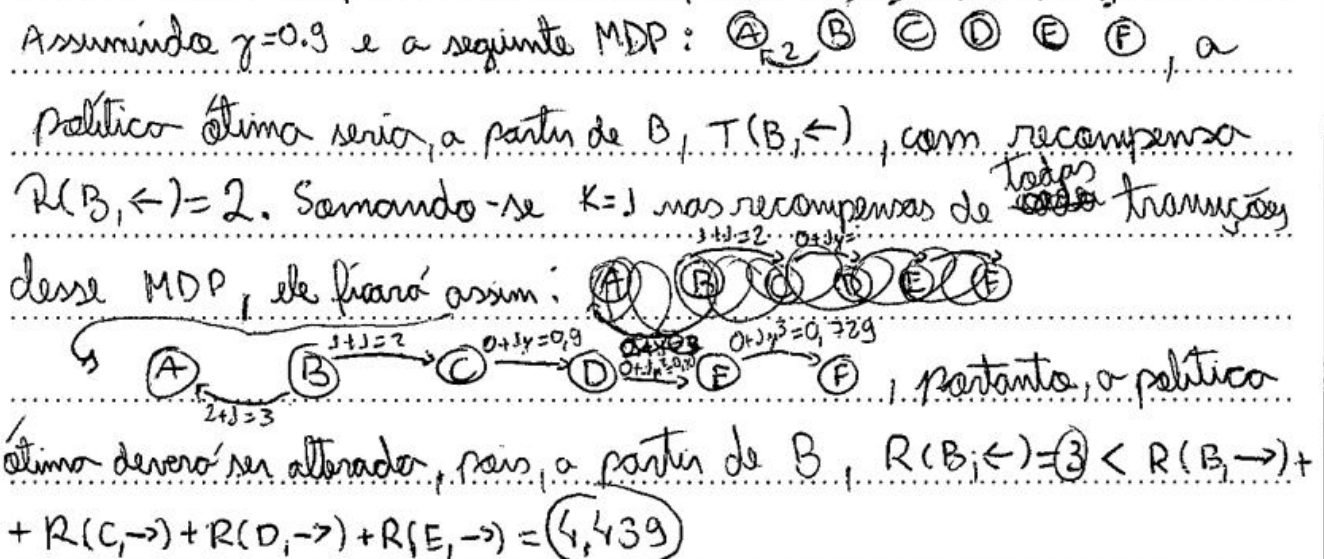 Assumindo γ=0.9 e a seguinte MDP: Ⓐ Ⓑ Ⓒ Ⓓ Ⓔ Ⓕ, a
2
política ótima seria, a partir de B, T(B,←), com recompensa
R(B,←)=2. Somando-se K=1 nas recompensas de todas transições
1+1=2 0+1γ=
desse MDP, ele ficará assim: Ⓐ Ⓑ Ⓒ Ⓓ Ⓔ Ⓕ
1+1=2 0+1γ=0,9 0+1γ³=0,729
Ⓐ Ⓑ Ⓒ Ⓓ Ⓔ Ⓕ, portanto, a política
2+1=3
ótima deverá ser alterada, pois, a partir de B, R(B,←)=③ < R(B,→)+
+ R(C,→)+R(D,→)+R(E,→)=4,439